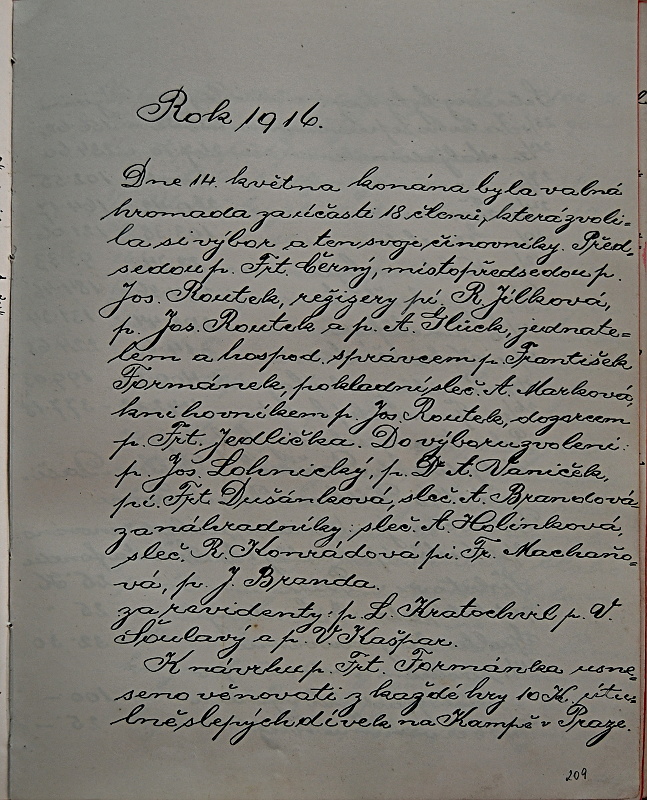 Rok 1916.
Dne 14. května konána byla valná
hromada za účasti 18 členů, která zvoli-
la si výbor a ten svoje činovníky. Před-
sedou p. Frt. Černý, místopředsedou p.
Jos. Routek, režizery pí. R. Jílková,
p. Jos. Routek a p. A. Glück, jednate-
lem a hospod. správcem p. František
Formánek, pokladní sleč. A. Marková,
knihovníkem p. Jos. Routek, dozorcem
p. Frt. Jedlička. Do výboru zvoleni:
p. Jos. Lohnický, p. Dr. A. Vaníček,
pí. Frt. Dušánková, sleč. A. Brandová
za náhradníky: sleč. A. Holínková,
sleč. R. Konrádová pí. Fr. Machaňo-
vá, p. J. Branda.
za revidenty: p. L. Kratochvil p. V.
Šoulavý a p. V. Kašpar.
K návrhu p. Frt. Formánka usne-
seno věnovati z každé hry 10 K. útu-
lně slepých dívek na Kampě v Praze.
209